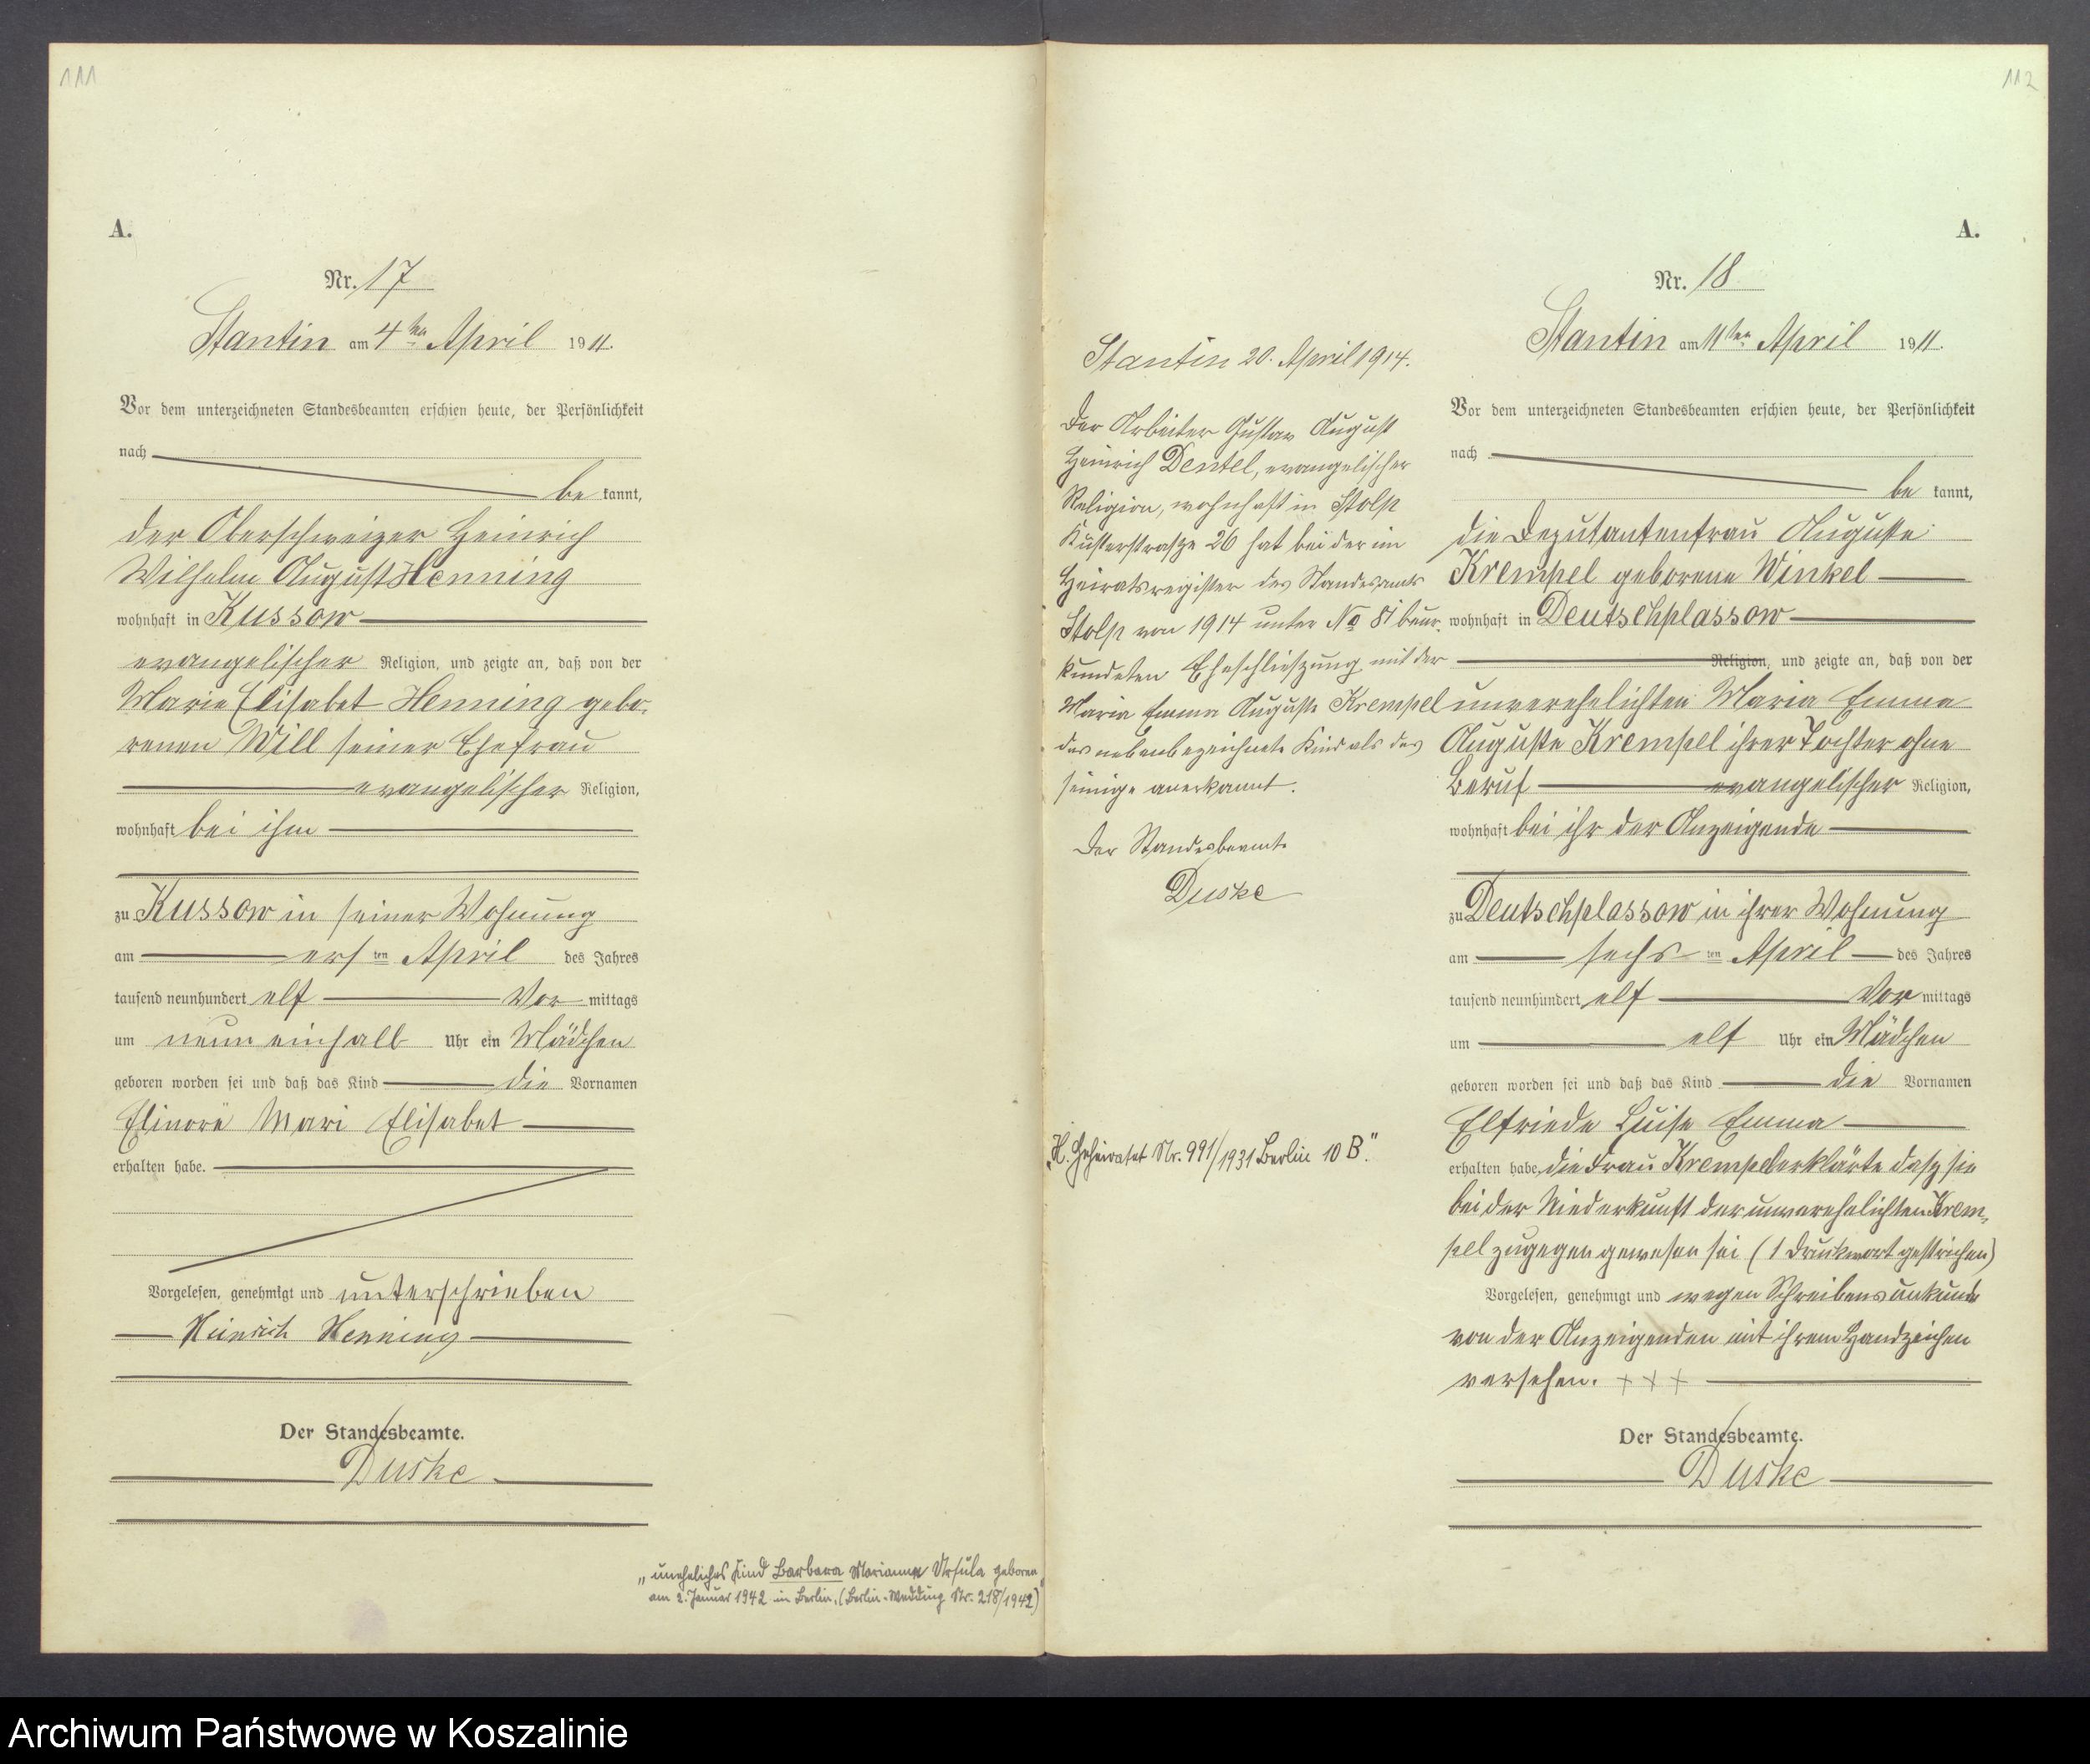 111
A.
Nr. 17
Stantin am 4ten April 1911.
Vor dem unterzeichneten Standesbeamten erschien heute, der Persönlichkeit
nach
be kannt,
der Oberschweizer Heinrich
Wilhelm August Henning
wohnhaft in Kussow
evangelischer Religion, und zeigte an, daß von der
Marie Elisabet Henning gebo-
renen Will seiner Ehefrau
evangelischer Religion,
wohnhaft bei ihm
zu Kussow in seiner Wohnung
am ersten April des Jahres
tausend neunhundert elf Vor mittags
um neun einhalb Uhr ein Mädchen
geboren worden sei und daß das Kind die Vornamen
Elinore Mari Elisabet
erhalten habe.
Vorgelesen, genehmigt und unterschrieben
Heinrich Henning
Der Standesbeamte.
Duske
„uneheliches Kind Barbara Marianne Ursula geboren
am 2. Januar 1942 in Berlin. (Berlin-Wedding Nr. 218/1942)"
112
A.
Nr. 18
Stantin am 11ten April 1911.
Vor dem unterzeichneten Standesbeamten erschien heute, der Persönlichkeit
nach
be kannt,
die Deputantenfrau Auguste
Krempel geborene Winkel
wohnhaft in Deutschplassow
Religion, und zeigte an, daß von der
unverehelichten Maria Emma
Auguste Krempel ihrer Tochter ohne
Beruf evangelischer Religion,
wohnhaft bei ihr der Anzeigende
zu Deutschplassow in ihrer Wohnung
am sechsten April des Jahres
tausend neunhundert elf Vor mittags
um elf Uhr ein Mädchen
geboren worden sei und daß das Kind die Vornamen
Elfriede Luise Emma
erhalten habe. die Frau Krempel erklärte daß sie
bei der Niederkunft der unverehelichten Krem-
pel zugegen gewesen sei (1 Druckwort gestrichen)
Vorgelesen, genehmigt und wegen Schreibensunkunde
von der Anzeigenden mit ihrem Handzeichen
versehen. + + +
Der Standesbeamte.
Duske
Stantin 20. April 1914.
Der Arbeiter Gustav August
Heinrich Dentel, evangelischer
Religion, wohnhaft in Stolp
Küsterstraße 26 hat bei der im
Heiratsregister des Standesamts
Stolp von 1914 unter No 81 beur-
kundeten Eheschließung mit der
Maria Emma Auguste Krempel
das nebenbezeichnete Kind als das
seinige anerkannt.
Der Standesbeamte
Duske
„K. Geheiratet Nr. 991/1931 Berlin 10 B."
Archiwum Państwowe w Koszalinie